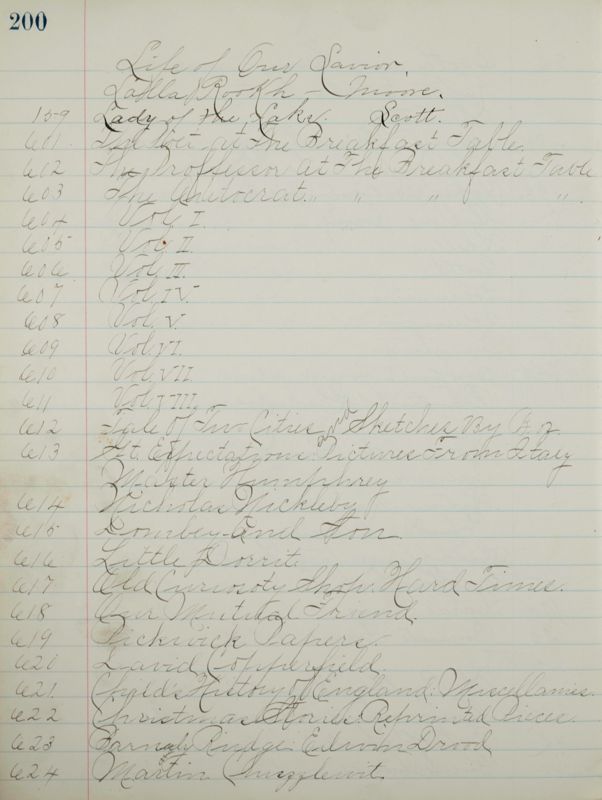 200
Life of Our Savior.
Lalla Rookh - Moore.
159 Lady of the Lake. Scott.
601 The Poet at the Breakfast Table.
602 The Proffessor at The Breakfast Table
603 The Autocrat. " " " " .
604 Vol. I.
605 Vol. II
606 Vol. III.
607 Vol. IV.
608 Vol. V.
609 Vol. VI.
610 Vol. VII.
611 Vol. VIII.
612 Tale Of Two Cities, and Sketches By
613 Gt. Expectations Pictures From Italy
Master Humphrey
614 Nicholas Nickleby
615 Dombey And Son
616 Little Dorrit.
617 Old Curiosty Shop. Hard Times.
618 Our Mutual Friend.
619 Pickwick Papers.
620 David Copperfield.
621 Child's History Of England: Miscellanies.
622 Christmas Stories Reprinted Pieces.
623 Barnaby Rudge: Edwin Drood
624 Martin Chuzzlewit.